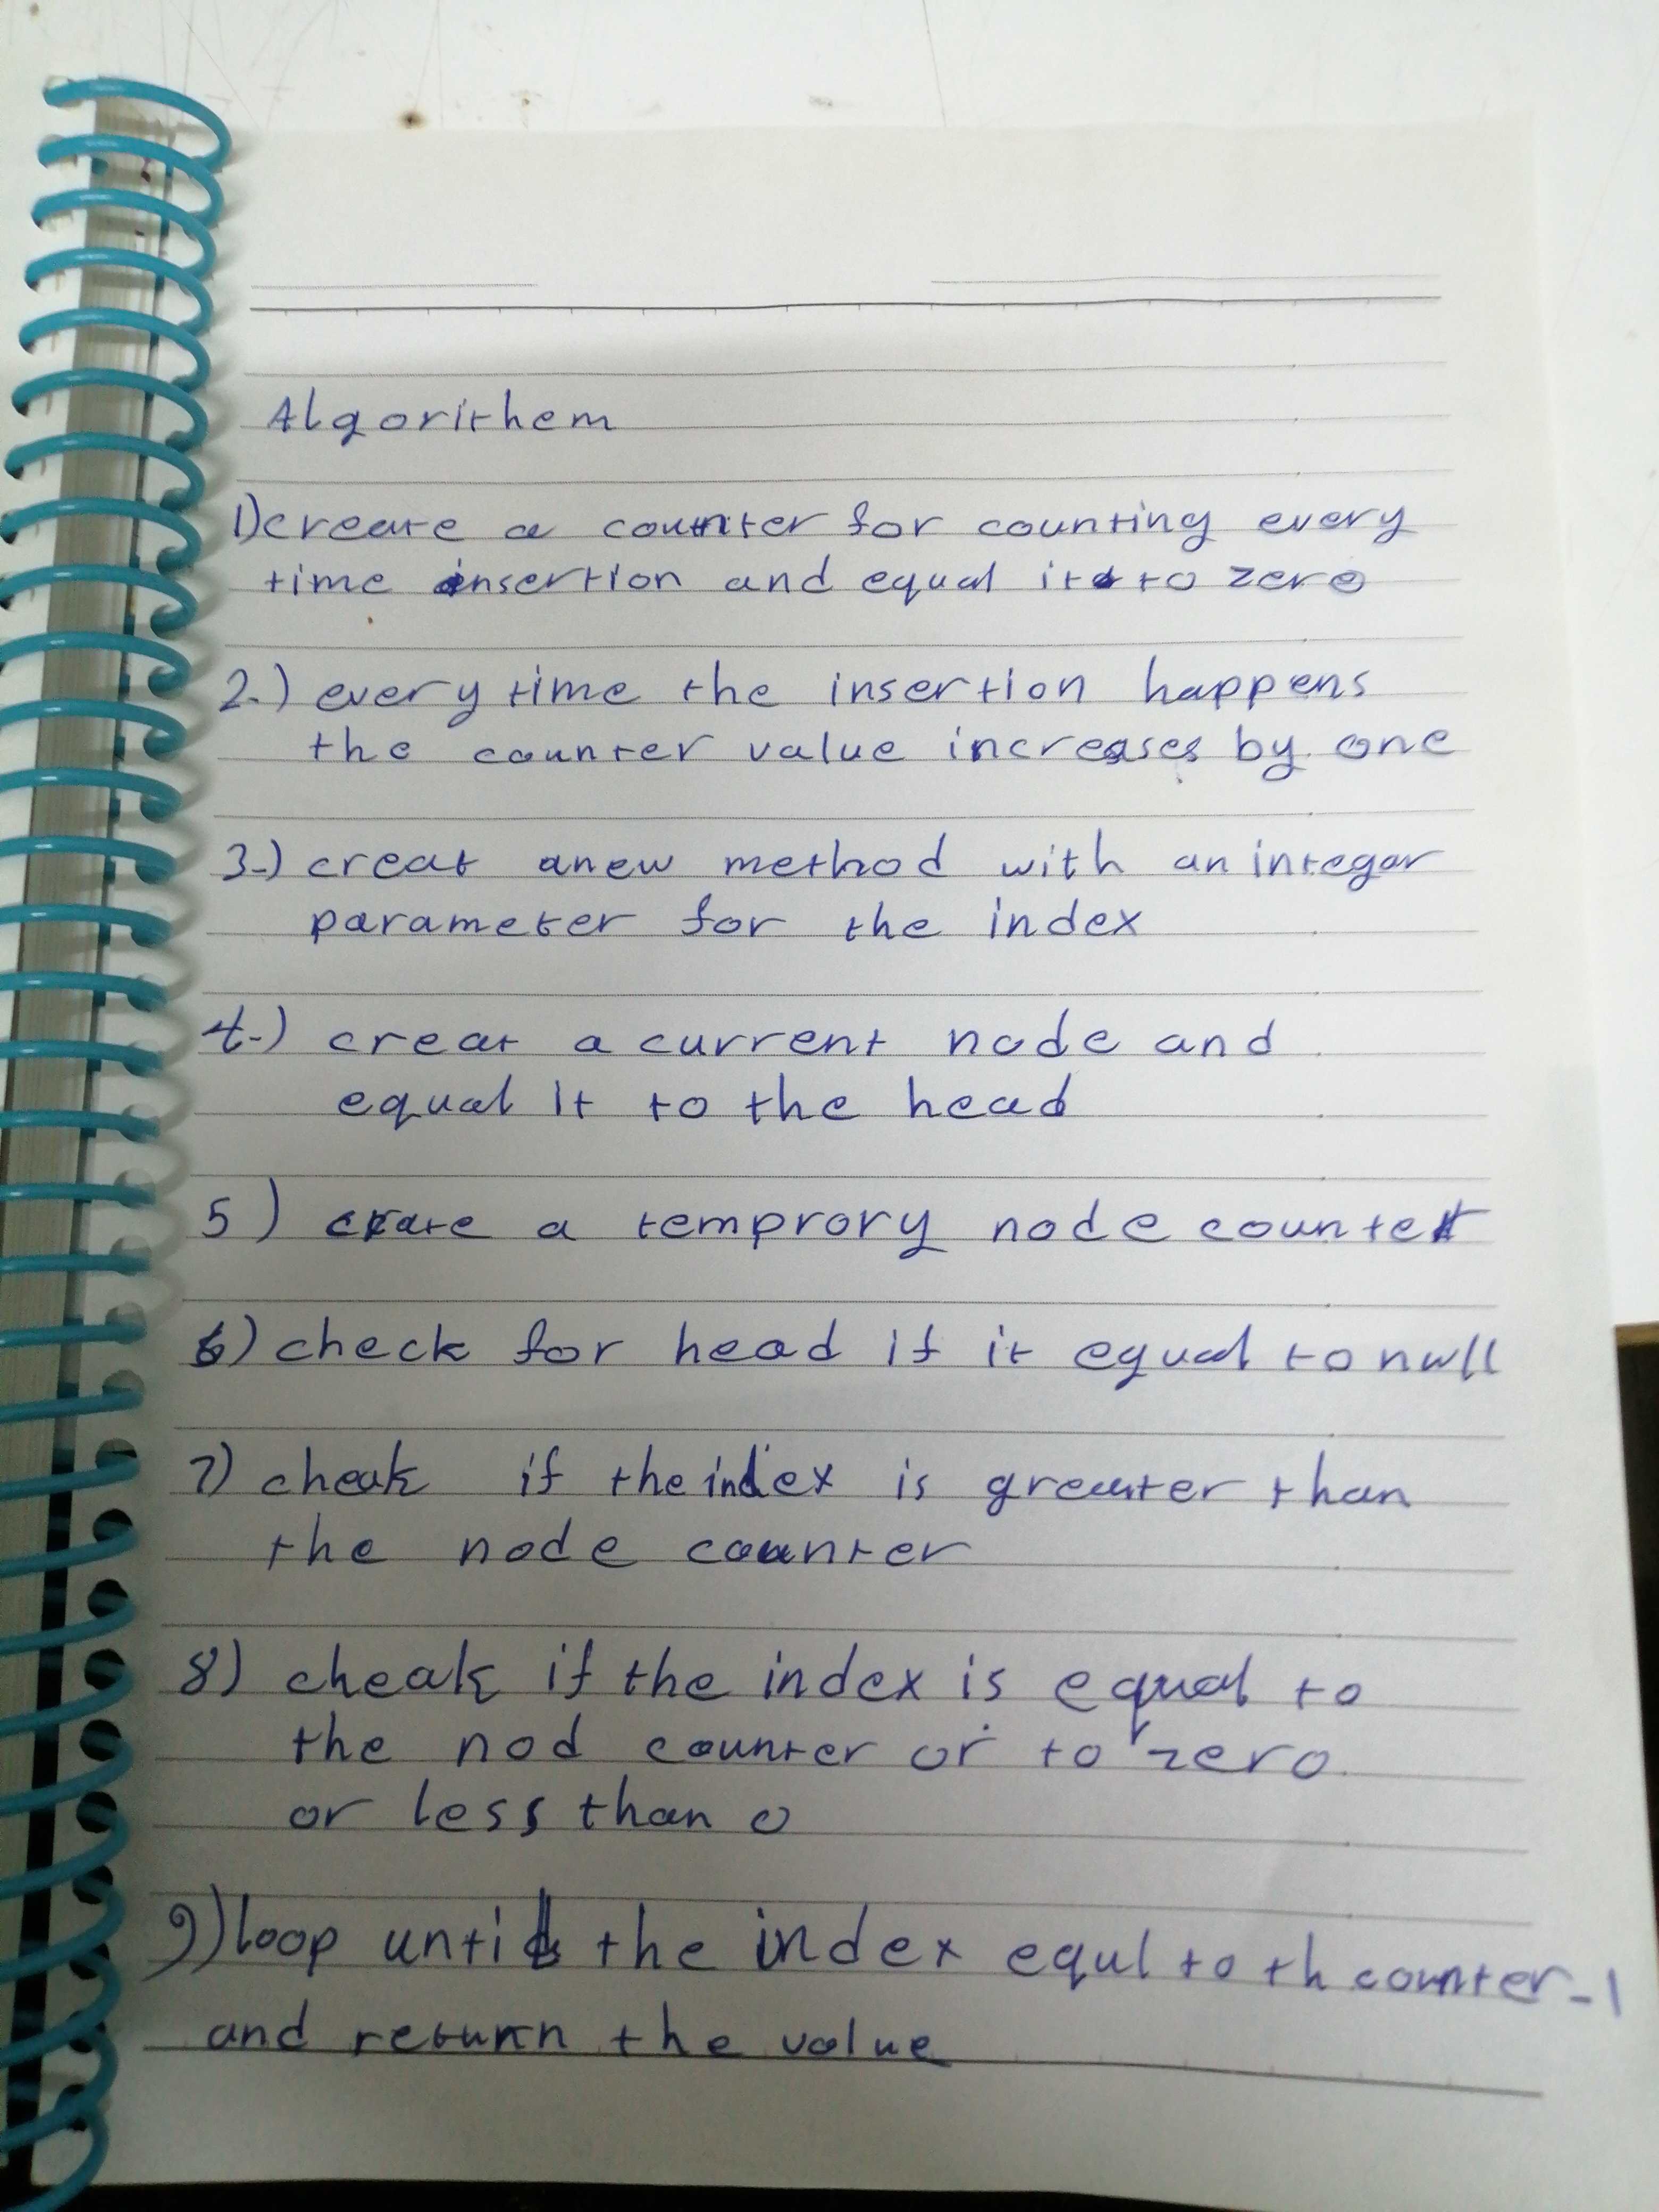 Algorithem
1) create a counter for counting every
time insertion and equal it to zero
2-) every time the insertion happens
the counter value increases by one
3-) creat anew method with an integar
parameter for the index
4-) creat a current node and
equal it to the head
5) crate a temprory node counter
6) check for head if it equal to null
7) cheak if the index is greater than
the node counter
8) cheak if the index is equal to
the nod counter or to zero
or less than 0
9) loop until the index equl to th counter-1
and return the value